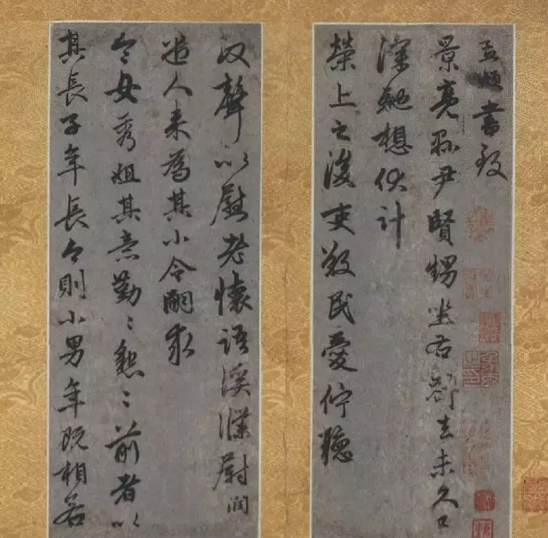 孟頫書致
景亮縣尹賢甥坐右別去未久日
深馳想伏計
榮上之後吏敬民愛佇聽
政聲以慰老懷語溪濮尉潤
遣人來為其小令嗣求
令女秀姐其意勤〻懇〻前者以
其長子年長今則小男年既相若